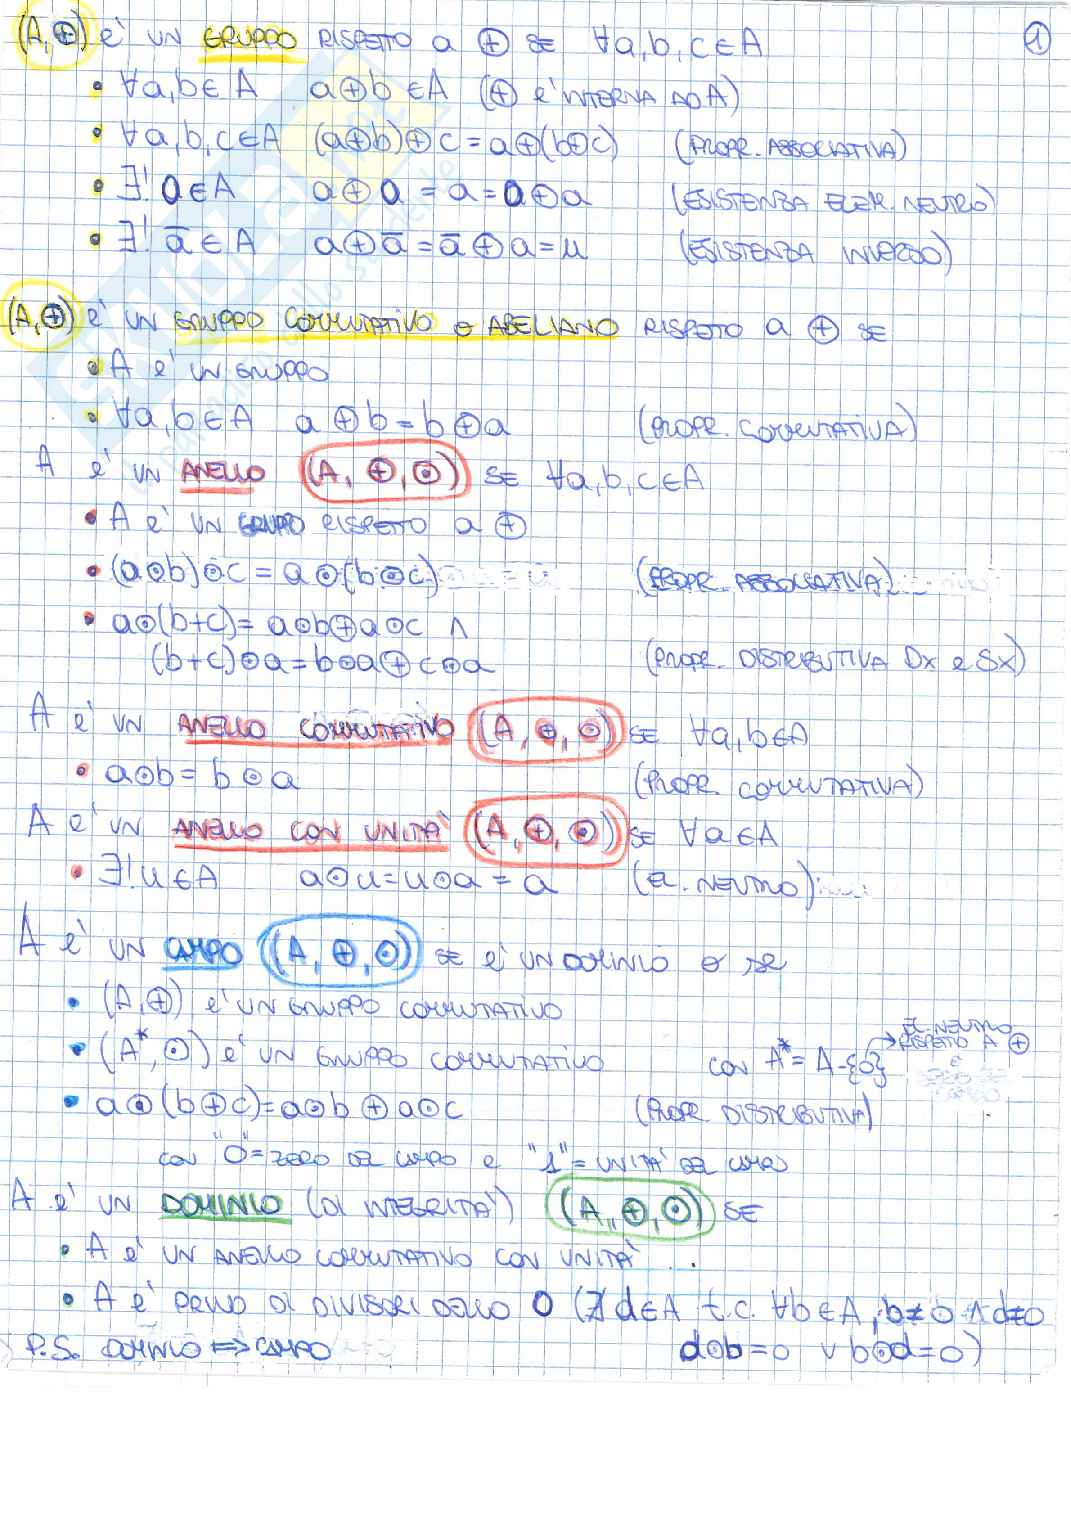 (A,⊕) è UN GRUPPO RISPETTO a ⊕ SE ∀a,b,c∈A
1
• ∀a,b∈A a⊕b∈A (⊕ è INTERNA AD A)
• ∀a,b,c∈A (a⊕b)⊕c=a⊕(b⊕c) (PROPR. ASSOCIATIVA)
• ∃! a∈A a⊕a=a=a⊕a (ESISTENZA ELEM. NEUTRO)
• ∃! ā∈A a⊕ā=ā⊕a=u (ESISTENZA INVERSO)
(A,⊕) è UN GRUPPO COMMUTATIVO O ABELIANO RISPETTO a ⊕ SE
• A è UN GRUPPO
• ∀a,b∈A a⊕b=b⊕a (PROPR. COMMUTATIVA)
A è UN ANELLO (A,⊕,⊙) SE ∀a,b,c∈A
• A è UN GRUPPO RISPETTO a ⊕
• (a⊙b)⊙c=a⊙(b⊙c) (PROPR. ASSOCIATIVA)
• a⊙(b+c)=a⊙b⊕a⊙c ∧
(b+c)⊙a=b⊙a⊕c⊙a (PROPR. DISTRIBUTIVA DX e SX)
A è UN ANELLO COMMUTATIVO (A,⊕,⊙) SE ∀a,b∈A
• a⊙b=b⊙a (PROPR. COMMUTATIVA)
A è UN ANELLO CON UNITÀ (A,⊕,⊙) SE ∀a∈A
• ∃! u∈A a⊙u=u⊙a=a (EL. NEUTRO)
A è UN CAMPO (A,⊕,⊙) SE è UN DOMINIO O SE
• (A,⊕) è UN GRUPPO COMMUTATIVO
• (A*,⊙) è UN GRUPPO COMMUTATIVO con A*=A-{0} → EL. NEUTRO RISPETTO A ⊕
• a⊙(b⊕c)=a⊙b⊕a⊙c (PROPR. DISTRIBUTIVA)
con "0"=ZERO DEL CAMPO e "1"=UNITÀ DEL CAMPO
A è UN DOMINIO (DI INTEGRITÀ) (A,⊕,⊙) SE
• A è UN ANELLO COMMUTATIVO CON UNITÀ
• A è PRIVO DI DIVISORI DELLO 0 (∄ d∈A t.c. ∀b∈A, b≠0 ∧ d≠0
P.S. DOMINIO ⇔ CAMPO d⊙b=0 ∨ b⊙d=0)